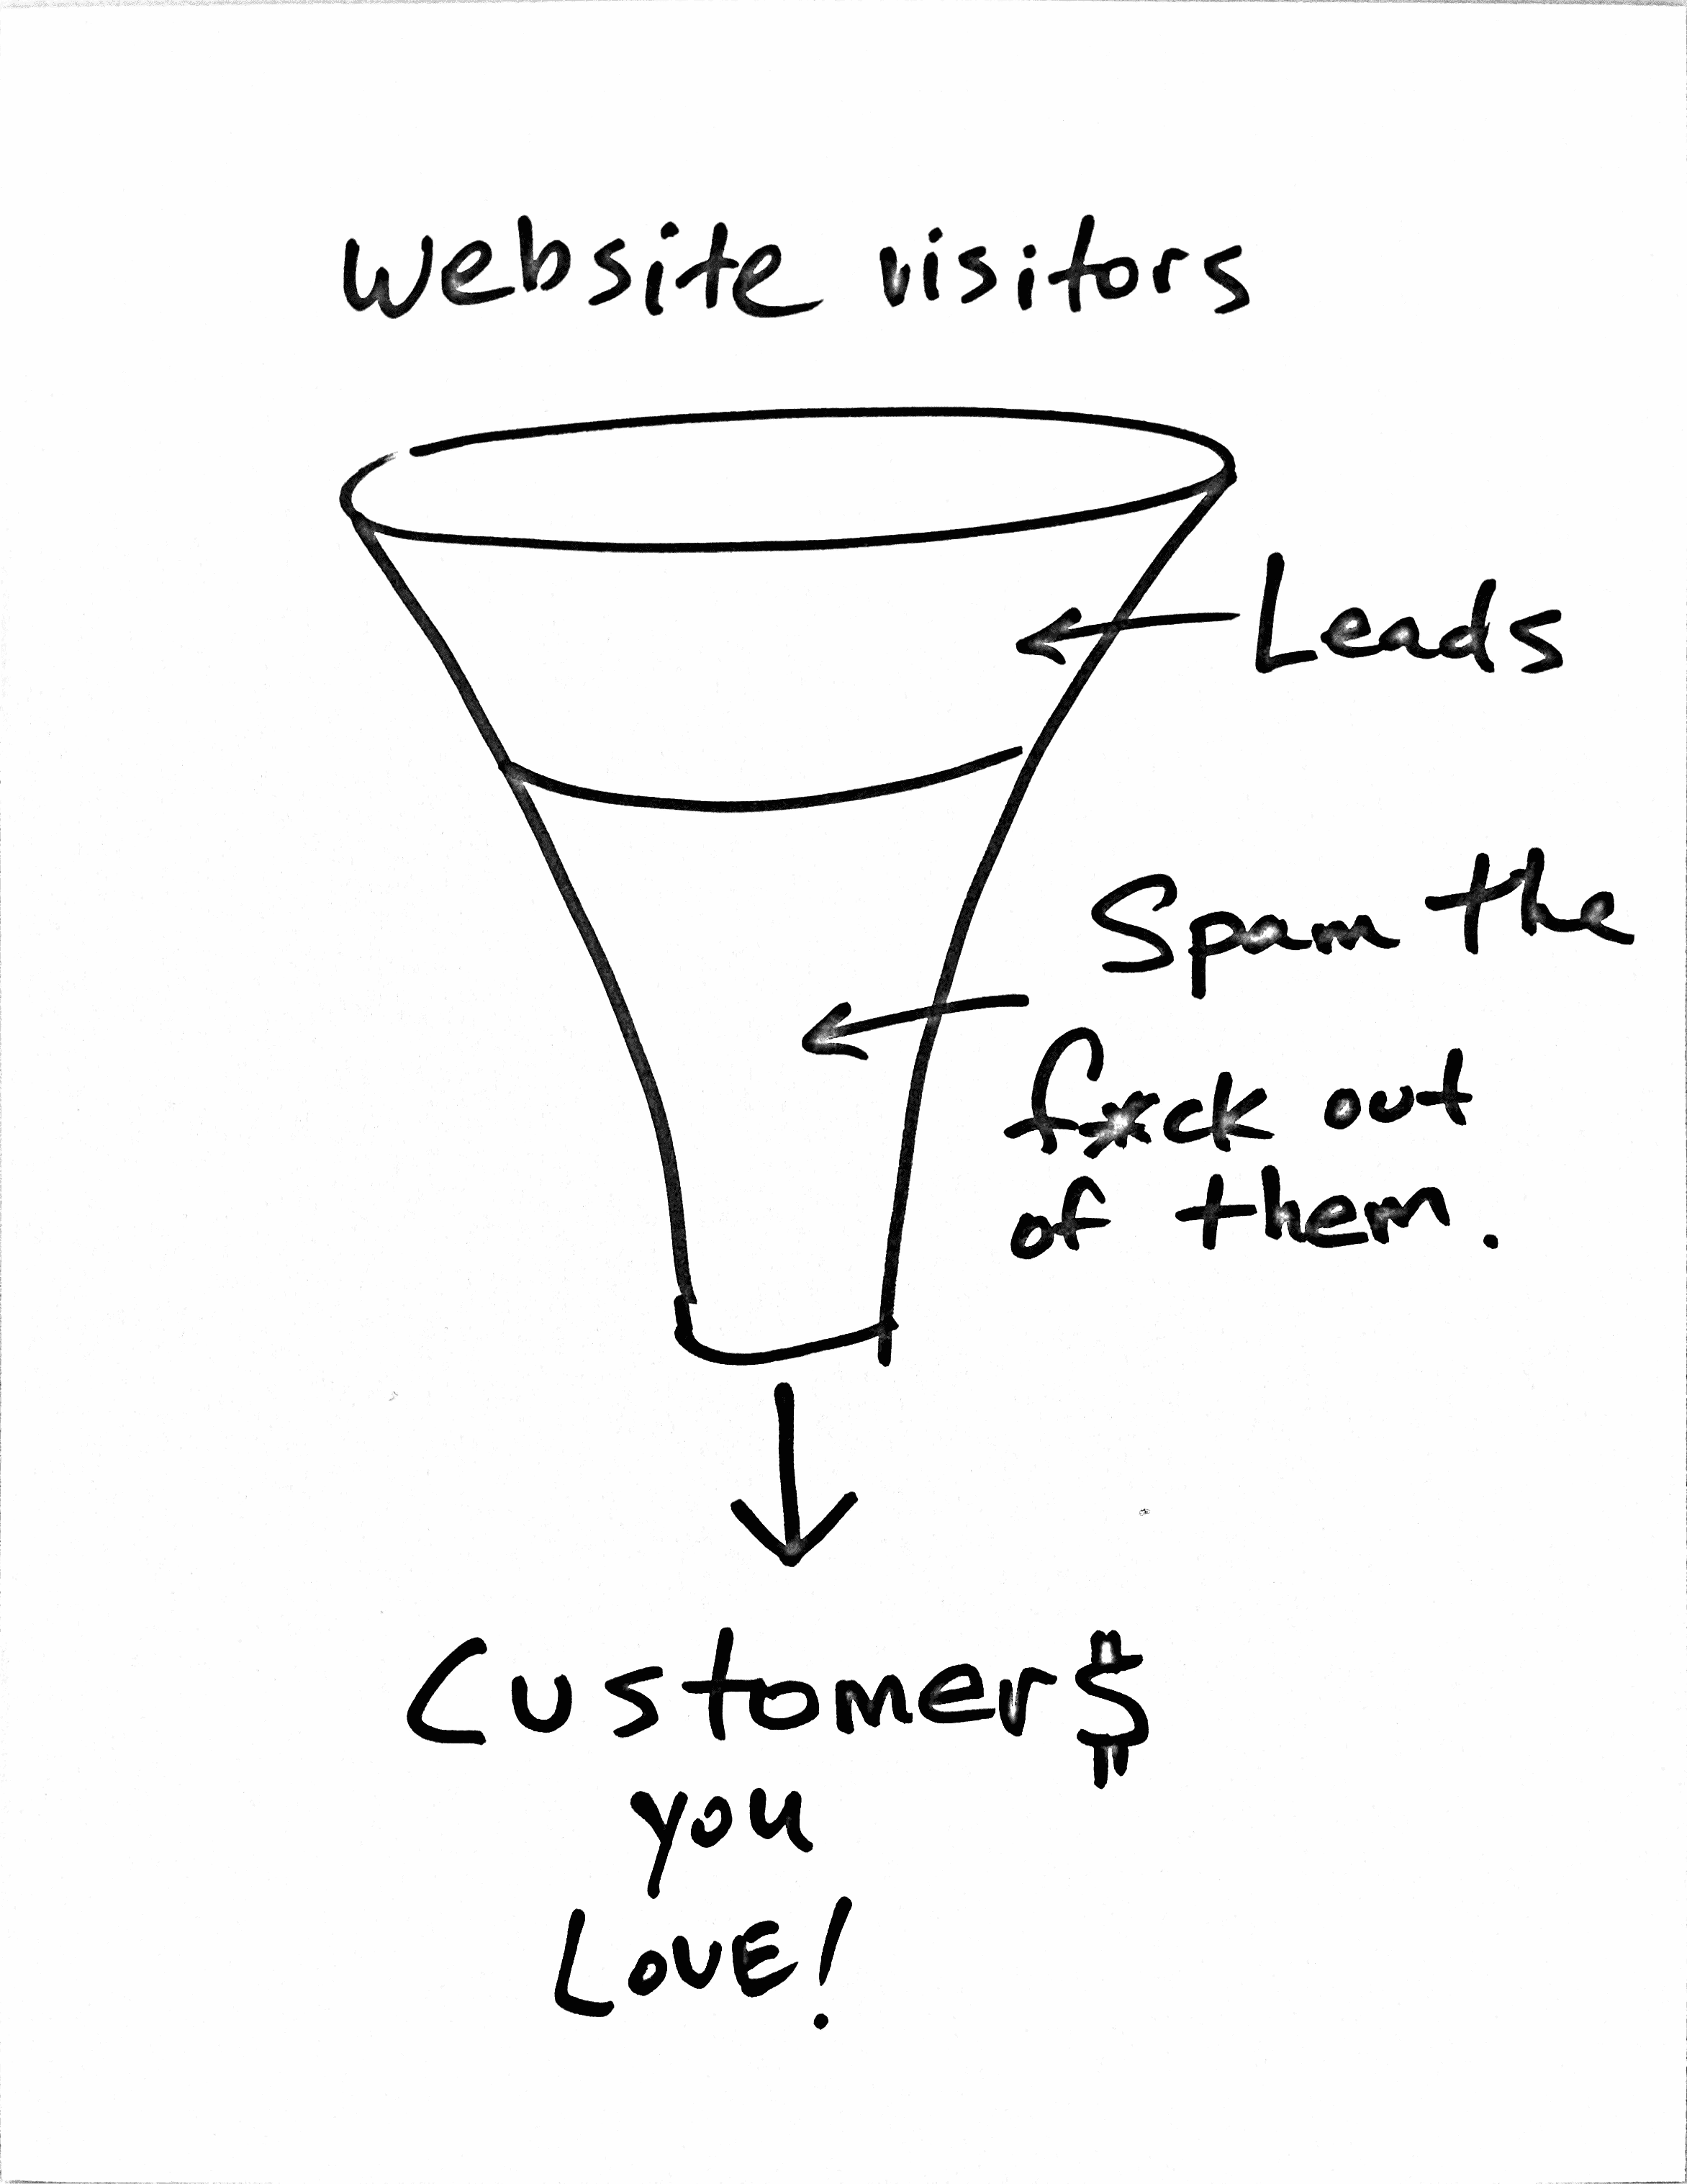 website visitors
Leads
Spam the
f*ck out
of them.
Customer$
you
LOVE!